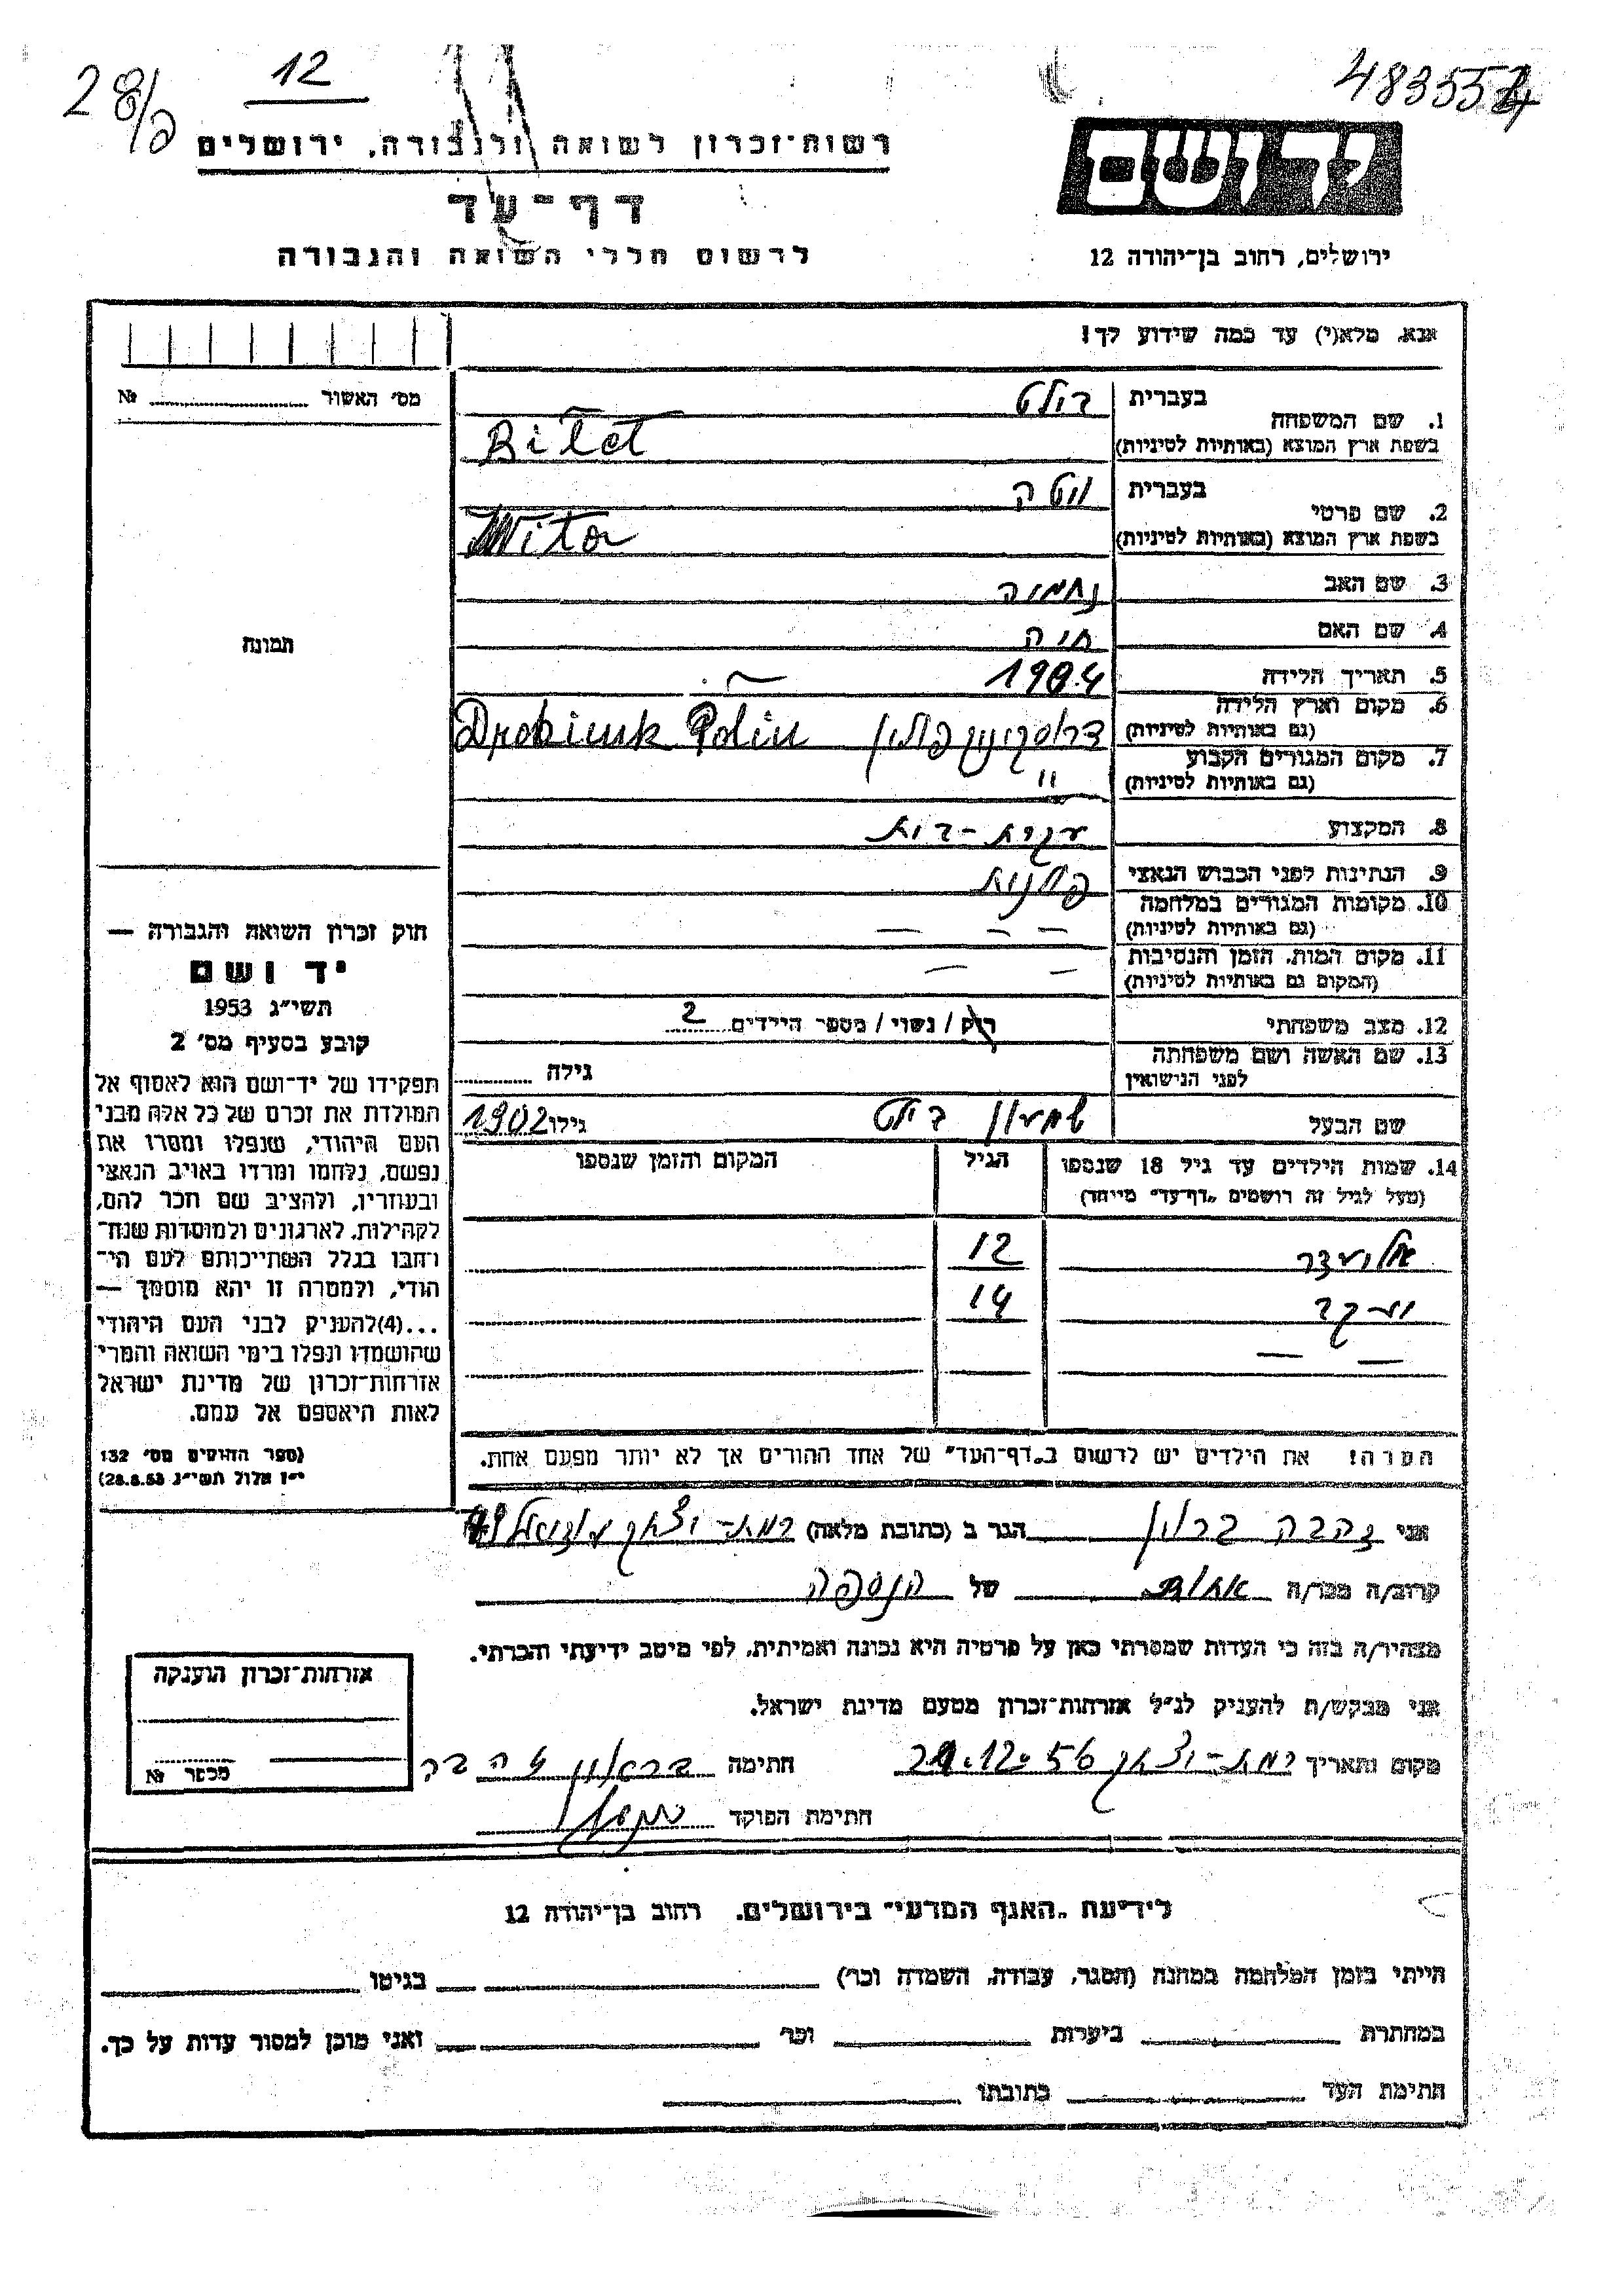 28/ג
12
483557
רשות־זכרון לשואה ולגבורה, ירושלים
דף־עד
לרשום חללי השואה והגבורה
יד ושם
ירושלים, רחוב בן־יהודה 12
אנא, מלא(י) עד כמה שידוע לך!
מס׳ האשור № 
תמונה
1. שם המשפחה בעברית בילט
בשפת ארץ המוצא (באותיות לטיניות) Bitet
2. שם פרטי בעברית ויטה
בשפת ארץ המוצא (באותיות לטיניות) Wita
3. שם האב נחמיה
4. שם האם חיה
5. תאריך הלידה 1904
6. מקום וארץ הלידה
(גם באותיות לטיניות) פולין Polin
7. מקום המגורים הקבוע "
(גם באותיות לטיניות)
8. המקצוע עקרת-בית
9. הנתינות לפני הכבוש הנאצי פולנית
10. מקומות המגורים במלחמה — — —
(גם באותיות לטיניות)
11. מקום המות, הזמן והנסיבות — —
(המקום גם באותיות לטיניות)
12. מצב משפחתי רוק / נשוי / מספר הילדים 2
13. שם האשה ושם משפחתה גילה
לפני הנישואין
שם הבעל שמעון בילט גילו 1902
14. שמות הילדים עד גיל 18 שנספו הגיל המקום והזמן שנספו
(מעל לגיל זה רושמים „דף־עד" מיוחד)
אליעזר 12
יעקב 14
— —
הערה! את הילדים יש לרשום ב„דף־העד" של אחד ההורים אך לא יותר מפעם אחת.
חוק זכרון השואה והגבורה —
יד ושם
תשי״ג 1953
קובע בסעיף מס׳ 2
תפקידו של יד־ושם הוא לאסוף אל
המולדת את זכרם של כל אלה מבני
העם היהודי, שנפלו ומסרו את
נפשם, נלחמו ומרדו באויב הנאצי
ובעוזריו, ולהציב שם וזכר להם,
לקהילות, לארגונים ולמוסדות שנח־
רבו בגלל השתייכותם לעם הי־
הודי, ולמטרה זו יהא מוסמך —
...(4) להעניק לבני העם היהודי
שהושמדו ונפלו בימי השואה והמרי
אזרחות־זכרון של מדינת ישראל
לאות היאספם אל עמם.
(ספר החוקים מס׳ 132
י״ז אלול תשי״ג 28.8.53)
אני זהבה ברוין הגר ב (כתובת מלאה) רמת-יצחק
קרוב/ה מכר/ה אחות של הנספה
מצהיר/ה בזה כי העדות שמסרתי כאן על פרטיה היא נכונה ואמיתית, לפי מיטב ידיעתי והכרתי.
אני מבקש/ת להעניק לנ״ל אזרחות־זכרון מטעם מדינת ישראל.
מקום ותאריך רמת-יצחק 12.56 חתימה
חתימת הפוקד
אזרחות־זכרון הוענקה
מספר №
לידיעת „האגף המדעי" בירושלים, רחוב בן־יהודה 12
הייתי בזמן המלחמה במחנה (הסגר, עבודה, השמדה וכר׳) בגיטו
במחתרת ביערות וכר׳ ואני מוכן למסור עדות על כך.
חתימת העד כתובתו